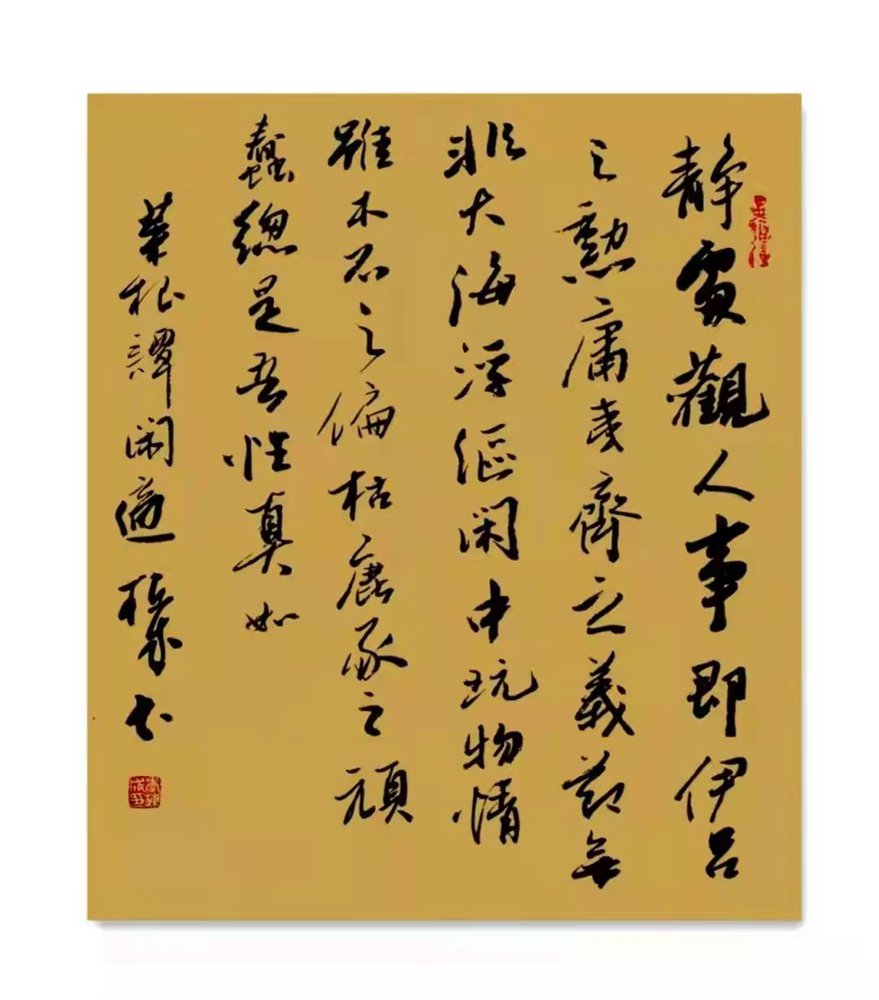 静處觀人事即伊呂
之勳庸夷齊之義節無
非大海浮漚閑中玩物情
雖木石之偏枯鹿豕之頑
蠢總是吾性真如
菜根譚閑適 书